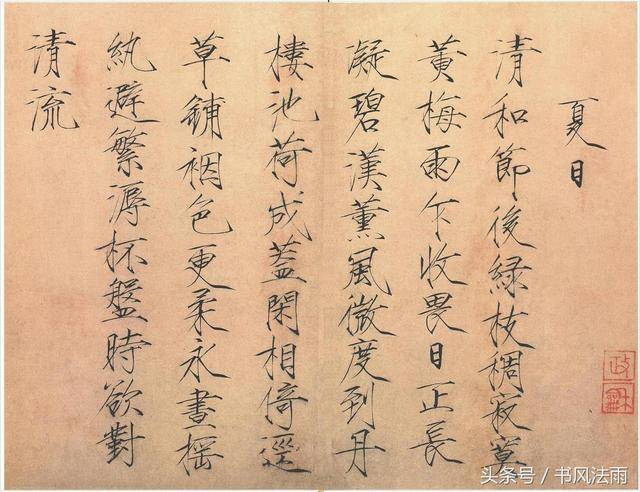 夏日
清和節後緑枝稠寂寞
黃梅雨乍收畏日正長
凝碧漢薰風微度到丹
樓池荷成蓋閑相倚逕
草鋪裀色更柔永晝搖
紈避繁溽杯盤時欲對
清流
政龢
头条号 / 书风法雨